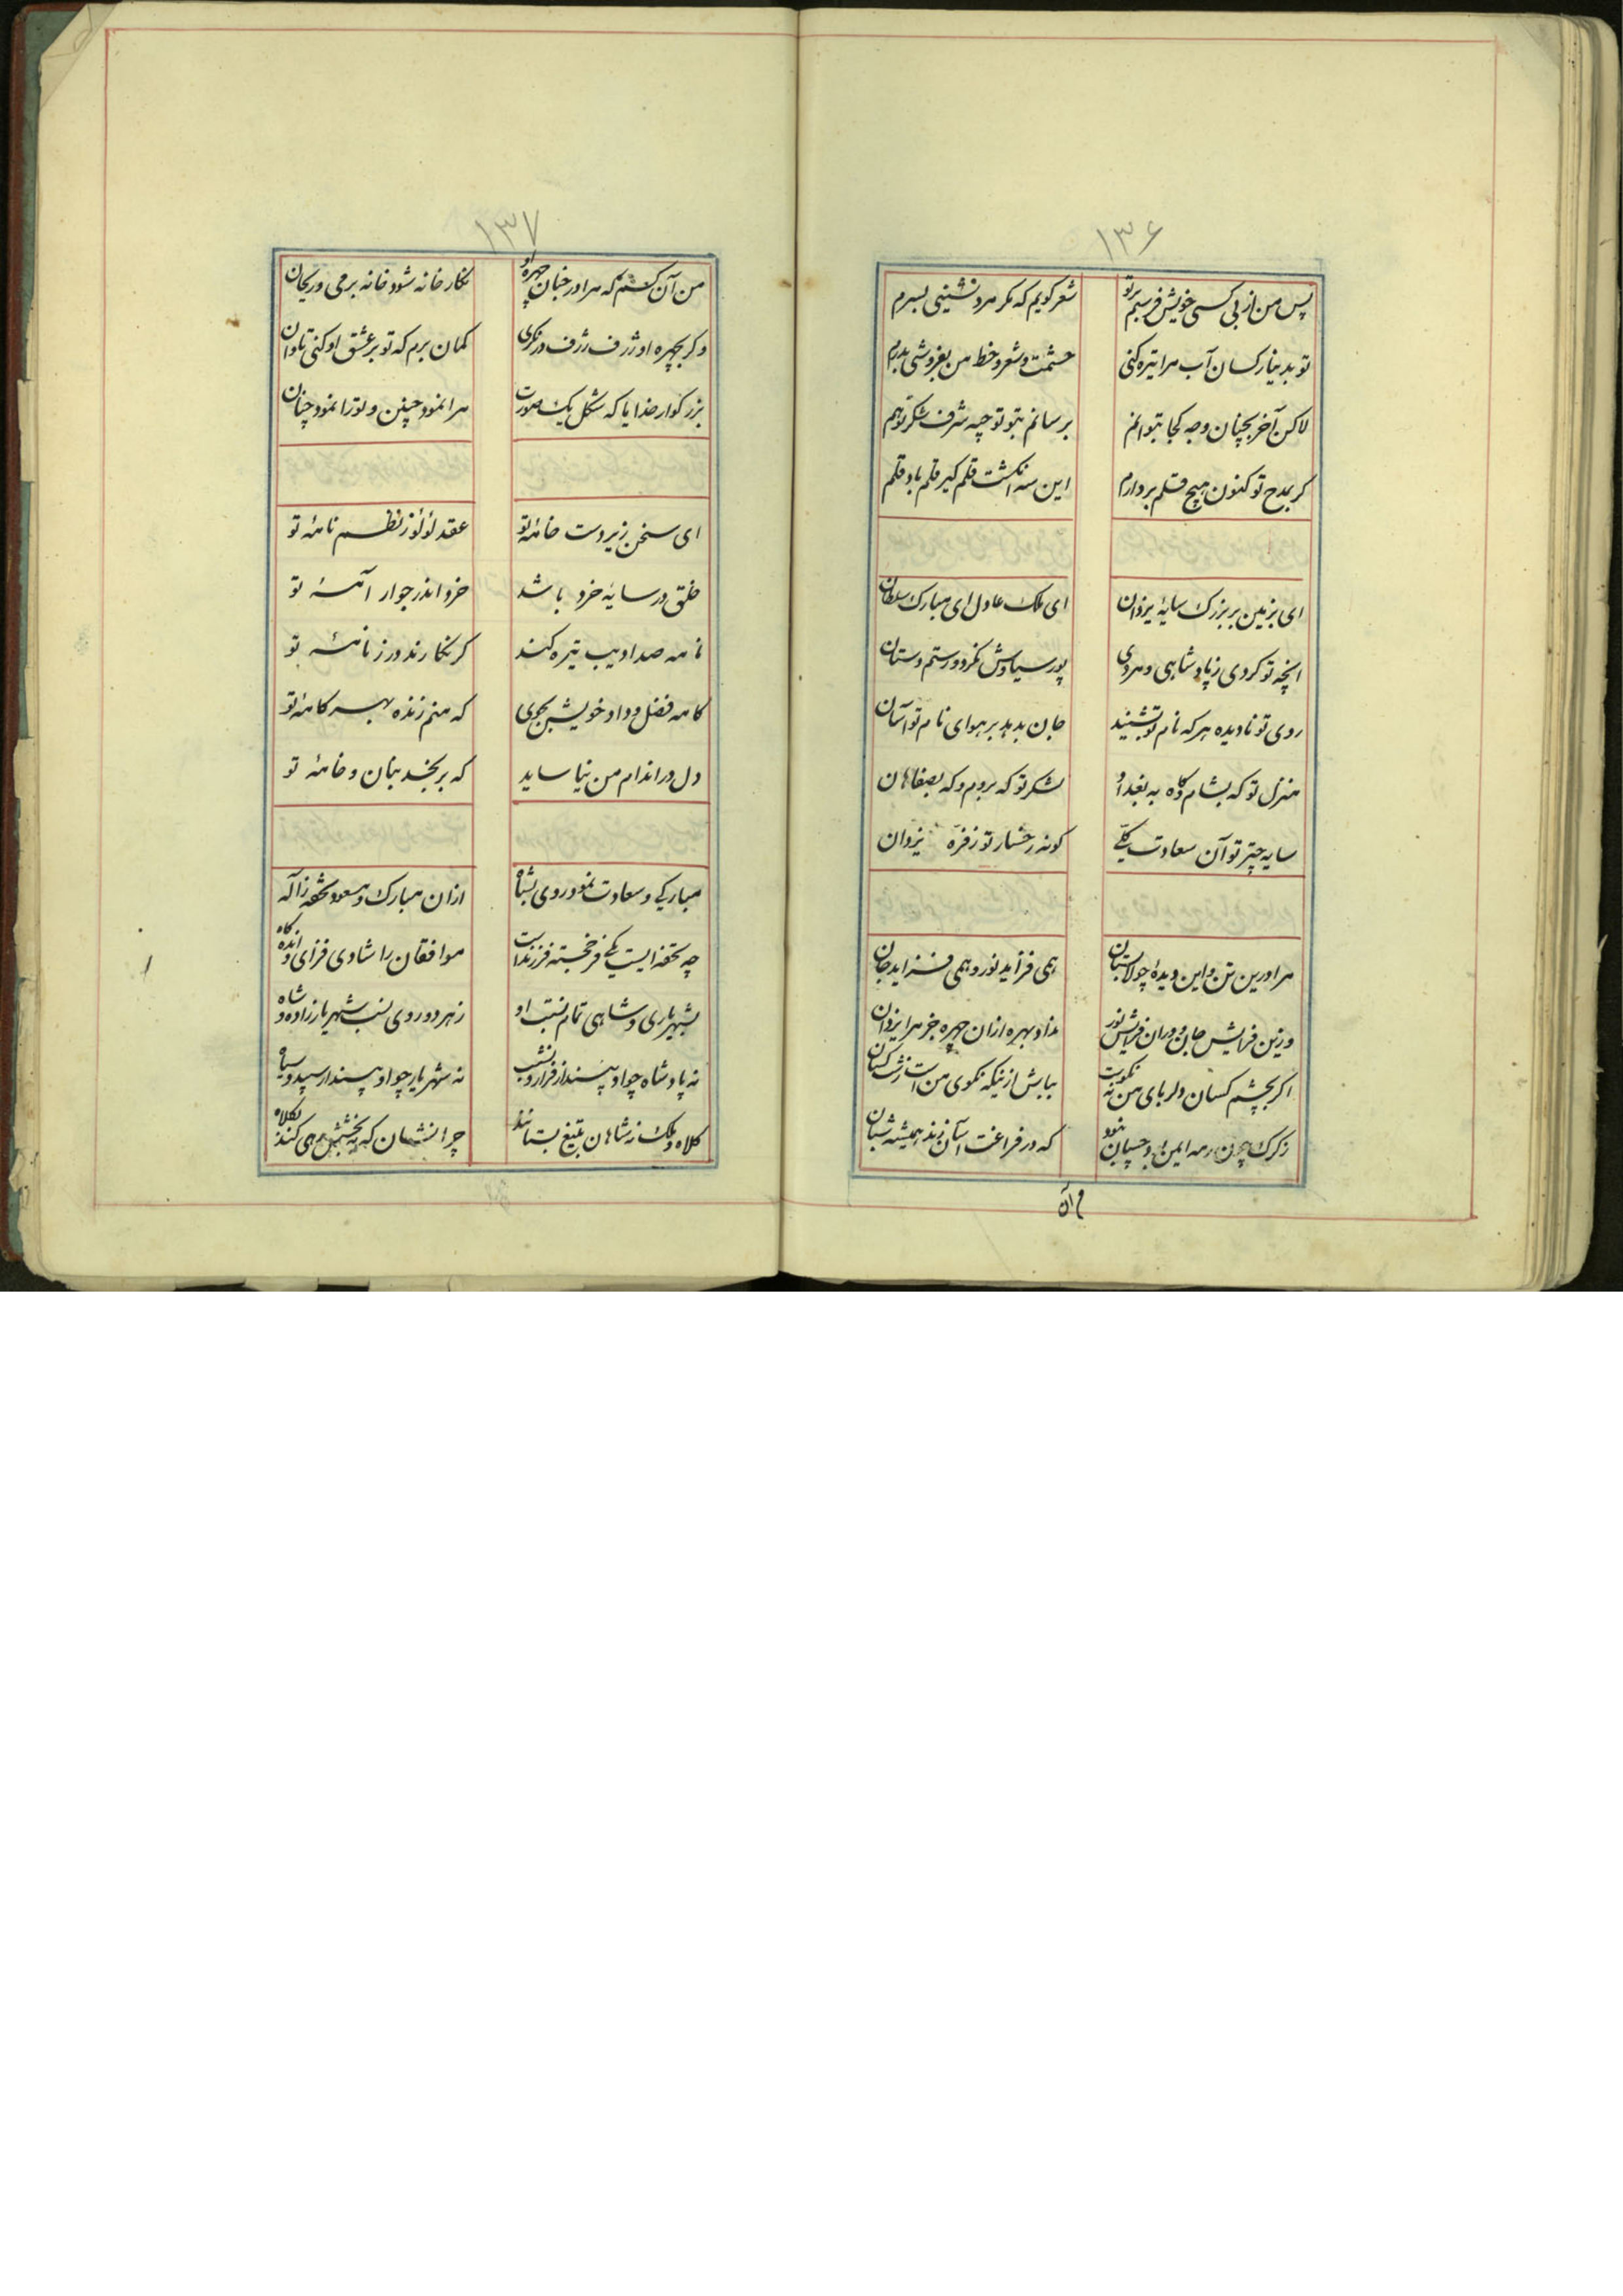 ۱۳۶
پس من از بی کسی خویش فرستم بر تو شعر گویم که مگر مرد نشینی بسرم
تو بدینار کسان آب مرا تیره کنی حشمت و شعر و خط من بفروشی بدرم
لاکن آخر بچنان وجه کجا بتوانم برسانم بتو تو چه شرف شکر توهم
گر بمدح تو کنون هیچ قلم بردارم این سه انگشت قلم گیر قلم باد قلم
ای بزمین بر بزرگ سایهٔ یزدان ای ملک عادل ای مبارک سلطان
انچه تو کردی ز پادشاهی و مردی پور سیاوش نکرد و رستم دستان
روی تو نادیده هر که نام تو بشنید جان بدهد بر هوای نام تو آسان
منزل تو که بشام و گاه به بغداد لشکر تو که بروم و که بصفاهان
سایه چتر تو آن سعادت کلی گونه رخسار تو ز فره یزدان
مرا درین تن و این دیدهٔ چو لالستان همی فزاید نور و همی فزاید جان
وزین فزایش جان و وزان فزایش نور نداد بهره ازان چهره جز مرا یزدان
اگر بچشم کسان دلربای من نه نکوست بیابش از نیکه نکوی من است زشت کسان
ز گرگ چون رمه ایمن بود چسپان نبود که در فراغت آسان زند همیشه شبان
من آن
۱۳۷
من آن کسم که مرا در خیان چهره او نگارخانه شود خانه پر می و ریحان
و گر بچهره او ژرف ژرف در نگری گمان برم که تو بر عشق او کنی تاوان
بزرگوار خدایا که شکل یک صورت مرا نمود چنین و ترا نمود چنان
ای سخن زیردست خامهٔ تو عقد لؤلؤ ز نظم نامهٔ تو
خلق در سایهٔ خرد باشد خرد اندر جوار آمنهٔ تو
نامه صد ادیب تیره کند گر نگارند در زنامهٔ تو
کامه فضل و داد خویش بجوی که منم زنده بهر کامهٔ تو
دل در اندام من نیاساید که بر بخسد بنان و خامهٔ تو
مبارکی و سعادت نمود روی بشاه ازان مبارک و مسعود تحفه ز اله
چه تحفه ایست یکی فر خجسته فرزند است موافقان را شادی فزای و انده کاه
بشهریاری و شاهی تمام نسبت او ز هر دو روی نسب شهریار زاده و شاه
نه پادشاه چو او پسندار فراز و نشیب نه شهریار چو او پسندار سپید و سیاه
کلاه و ملک ز شاهان بتیغ بستاند چرا نشسان که ببخشش همی کنند بکلاه